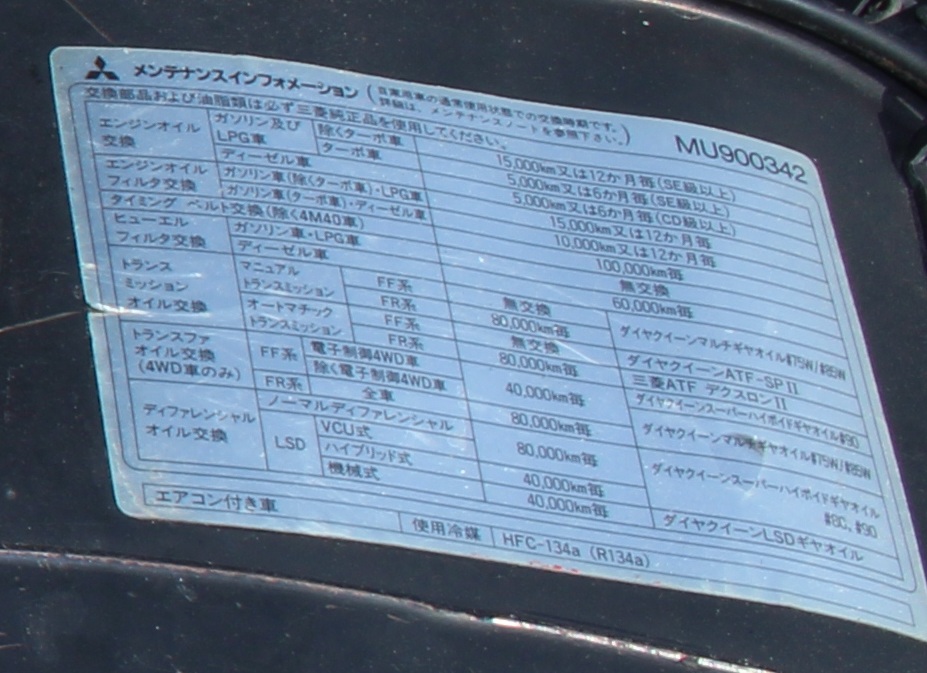 メンテナンスインフォメーション（自家用車の通常使用状態での交換時期です。
詳細は、メンテナンスノートを参照下さい。）
MU900342
交換部品および油脂類は必ず三菱純正品を使用してください。
エンジンオイル交換 ガソリン及びLPG車 除くターボ車 15,000km又は12か月毎(SE級以上)
ターボ車 5,000km又は6か月毎(SE級以上)
ディーゼル車 5,000km又は6か月毎(CD級以上)
エンジンオイルフィルタ交換 ガソリン車(除くターボ車)・LPG車 15,000km又は12か月毎
ガソリン車(ターボ車)・ディーゼル車 10,000km又は12か月毎
タイミング ベルト交換(除く4M40車) 100,000km毎
ヒューエルフィルタ交換 ガソリン車・LPG車 無交換
ディーゼル車 60,000km毎
トランスミッションオイル交換 マニュアルトランスミッション FF系 無交換 ダイヤクイーンマルチギヤオイル#75W/#85W
FR系 80,000km毎
オートマチックトランスミッション FF系 無交換 ダイヤクイーンATF-SPⅡ
FR系 80,000km毎 三菱ATF デクスロンⅡ
トランスファオイル交換(4WD車のみ) FF系 電子制御4WD車 40,000km毎 ダイヤクイーンスーパーハイポイドギヤオイル#90
除く電子制御4WD車 ダイヤクイーンマルチギヤオイル#75W/#85W
FR系 全車 80,000km毎
ディファレンシャルオイル交換 ノーマルディファレンシャル 80,000km毎 ダイヤクイーンスーパーハイポイドギヤオイル#80、#90
LSD VCU式
ハイブリッド式 40,000km毎
機械式 40,000km毎 ダイヤクイーンLSDギヤオイル
エアコン付き車 使用冷媒 HFC-134a (R134a)